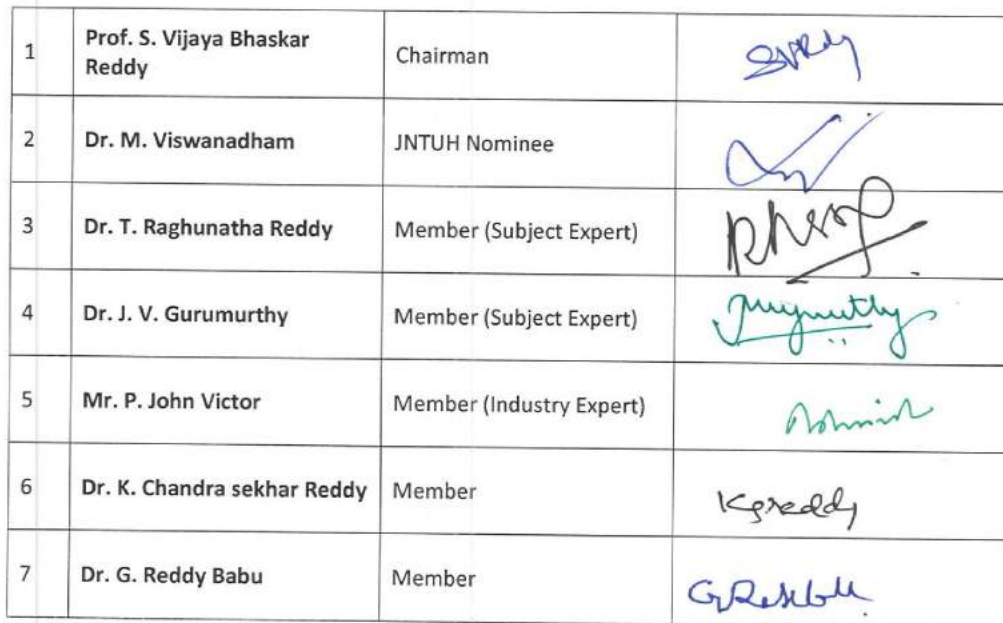 1 Prof. S. Vijaya Bhaskar Chairman
Reddy
2 Dr. M. Viswanadham JNTUH Nominee
3 Dr. T. Raghunatha Reddy Member (Subject Expert)
4 Dr. J. V. Gurumurthy Member (Subject Expert)
5 Mr. P. John Victor Member (Industry Expert)
6 Dr. K. Chandra sekhar Reddy Member Kgreddy
7 Dr. G. Reddy Babu Member